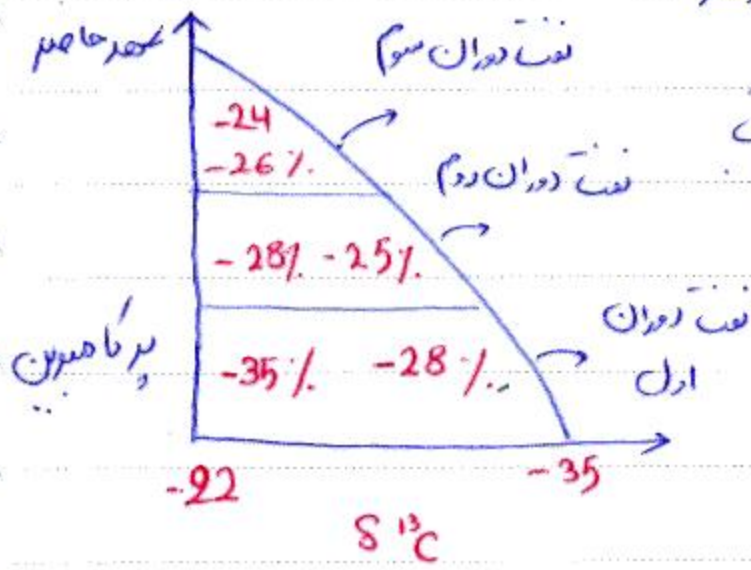 عهد حاضر
نفت دوران سوم
-24
-26 %.
نفت دوران دوم
-28% -25%.
نفت دوران
اول
پرکامبرین
-35 %. -28 %.
-22
-35
δ ¹³C